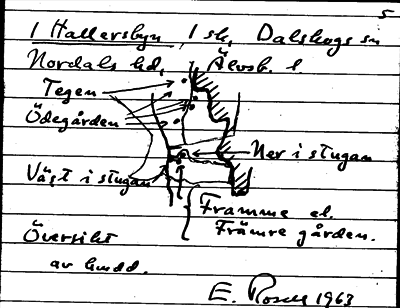 5
I Hallersbyn, 1 sk, Dalskogs sn
Nordals hd, Älvsb. l.
Tegen
Ödegården
Ner i stugan
Väst i stugan
Framme el.
Främre gården.
Översikt
av hudd.
E. Rosell 1963